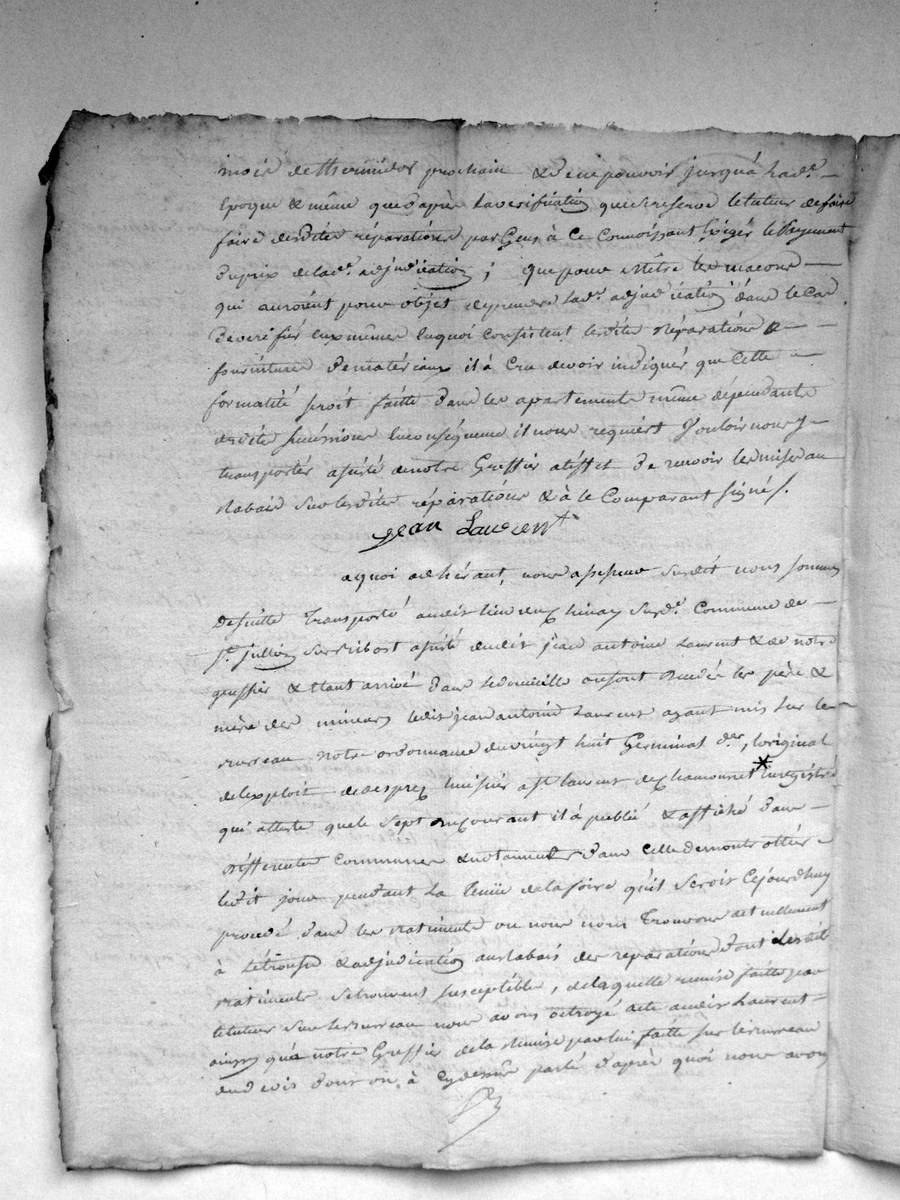 mois de thermidor prochain & de ne pouvoir jusqu'a lad.e
Epoque & même que d'après la verification que se reserve le tuteur de faire
faire desdites réparations par Gens à ce Connoissant, Exiger le payement
du prix de lad.e adjudication ; que pour mettre les macons
qui auroient pour objet de prendre lad.e adjudication dans le cas
de verifier eux même En quoi Consistent lesdites Réparations &
fournitures de matériaux il à Cru devoir indiquér que Cette
formalité seroit faitte dans les apartements même dépendants
desdites successions En conséquence il nous requiert Vouloir nous
transportér assisté de notre Greffier a l'effet de recevoir les mises au
Rabais sur lesdites réparations & à le Comparant signé /.
Jean Laurent
a quoi adhérant, nous assesseur susdit nous sommes
De suitte Transporté audit lieu du susd.e Commune de
St. Jullien sur Bibost assisté dudit jean antoine Laurent & de notre
greffier & Etant arrivé dans le domicille ou sont décédés les père &
mère des mineurs ledit jean antoine Laurent ayant mis sur le
Bureau notre ordonnance du vingt huit Germinal der, l'original
de l'exploit de huissier a St laurent de chamousset * Enregistré
qui atteste que le sept du courant il à publié & affiché dans
Differentes Communes & notamment dans Celle de montrottier
ledit jour pendant la tenüe de la foire qu'il seroit Cejourdhuy
procedé dans les Batiments ou nous nous Trouvons actuellement
à l'etrousse & adjudication au Rabais des reparations dont lesdits
Batiments se trouvent susceptibles, de laquelle remise faitte par le
tuteur sur le Bureau nous avons octroyé acte audit Laurent
ainsy qu'a notre Greffier de la Remise par lui faitte sur le Bureau
dud on à Cydessus parlé d'après quoi nous avons